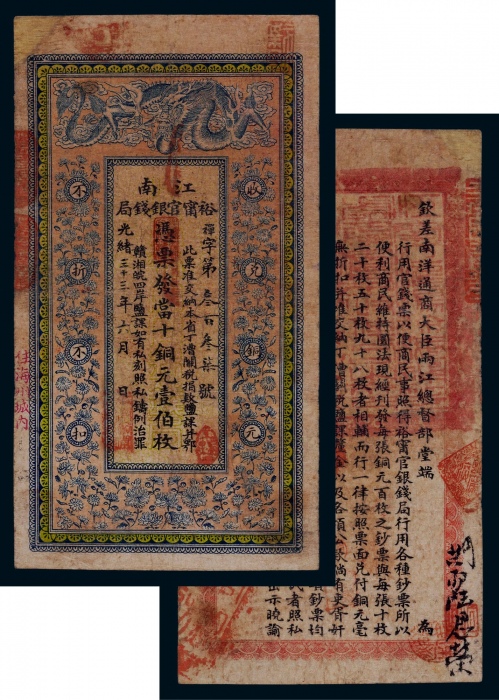 江南
裕甯官銀錢局
憑票發當十銅元壹伯枚
字第叁百柒號
此票准交納本省丁漕關稅捐款鹽課并鄂
贛湘皖四岸鹽課如有私刻照私鑄例治罪
光緒三十三年六月 日
收兌銅元
不折不扣
住海川城內
欽差南洋通商大臣兩江總督部堂端 為
行用官錢票以便商民事照得裕甯官銀錢局行用各種鈔票所以
便利商民維持圜法現經刊發每張銅元百枚之鈔票與每張十枚
二十枚五十枚九十八枚者相輔而行一律按照票面兌付銅元毫
無折扣并准交納丁漕關稅鹽課釐金以及各項公款倘有更貨奸
鈔票均
民者照私
出示曉諭